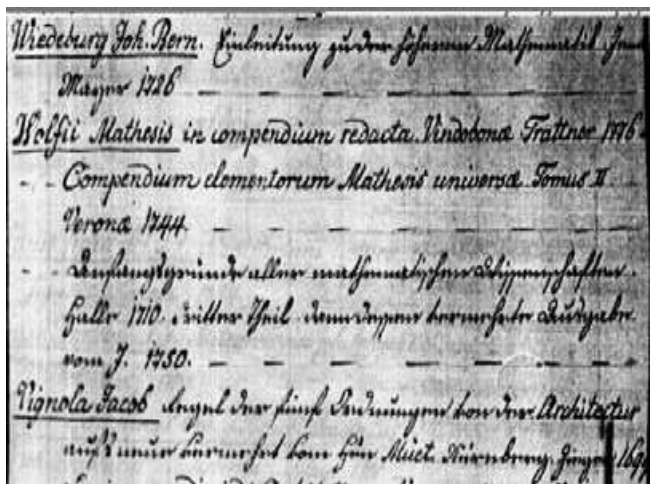 Wiedeburg Joh. Bern. Einleitung zu der höheren Mathematik Jena
Mayer 1726
Wolfii Mathesis in compendium redacta. Vindobonæ Trattner 1776
Compendium elementorum Mathesis universæ. Tomus II
Veronæ 1744.
Anfangsgründe aller mathematischen Wissenschaften.
Halle 1710. dritter Theil dann dessen vermehrte Ausgabe
vom J. 1750.
Vignola Jacob Regel der fünf Ordnungen von der Architectur
auf's neue vermehrt vom Hrn Müet. Nürnberg.